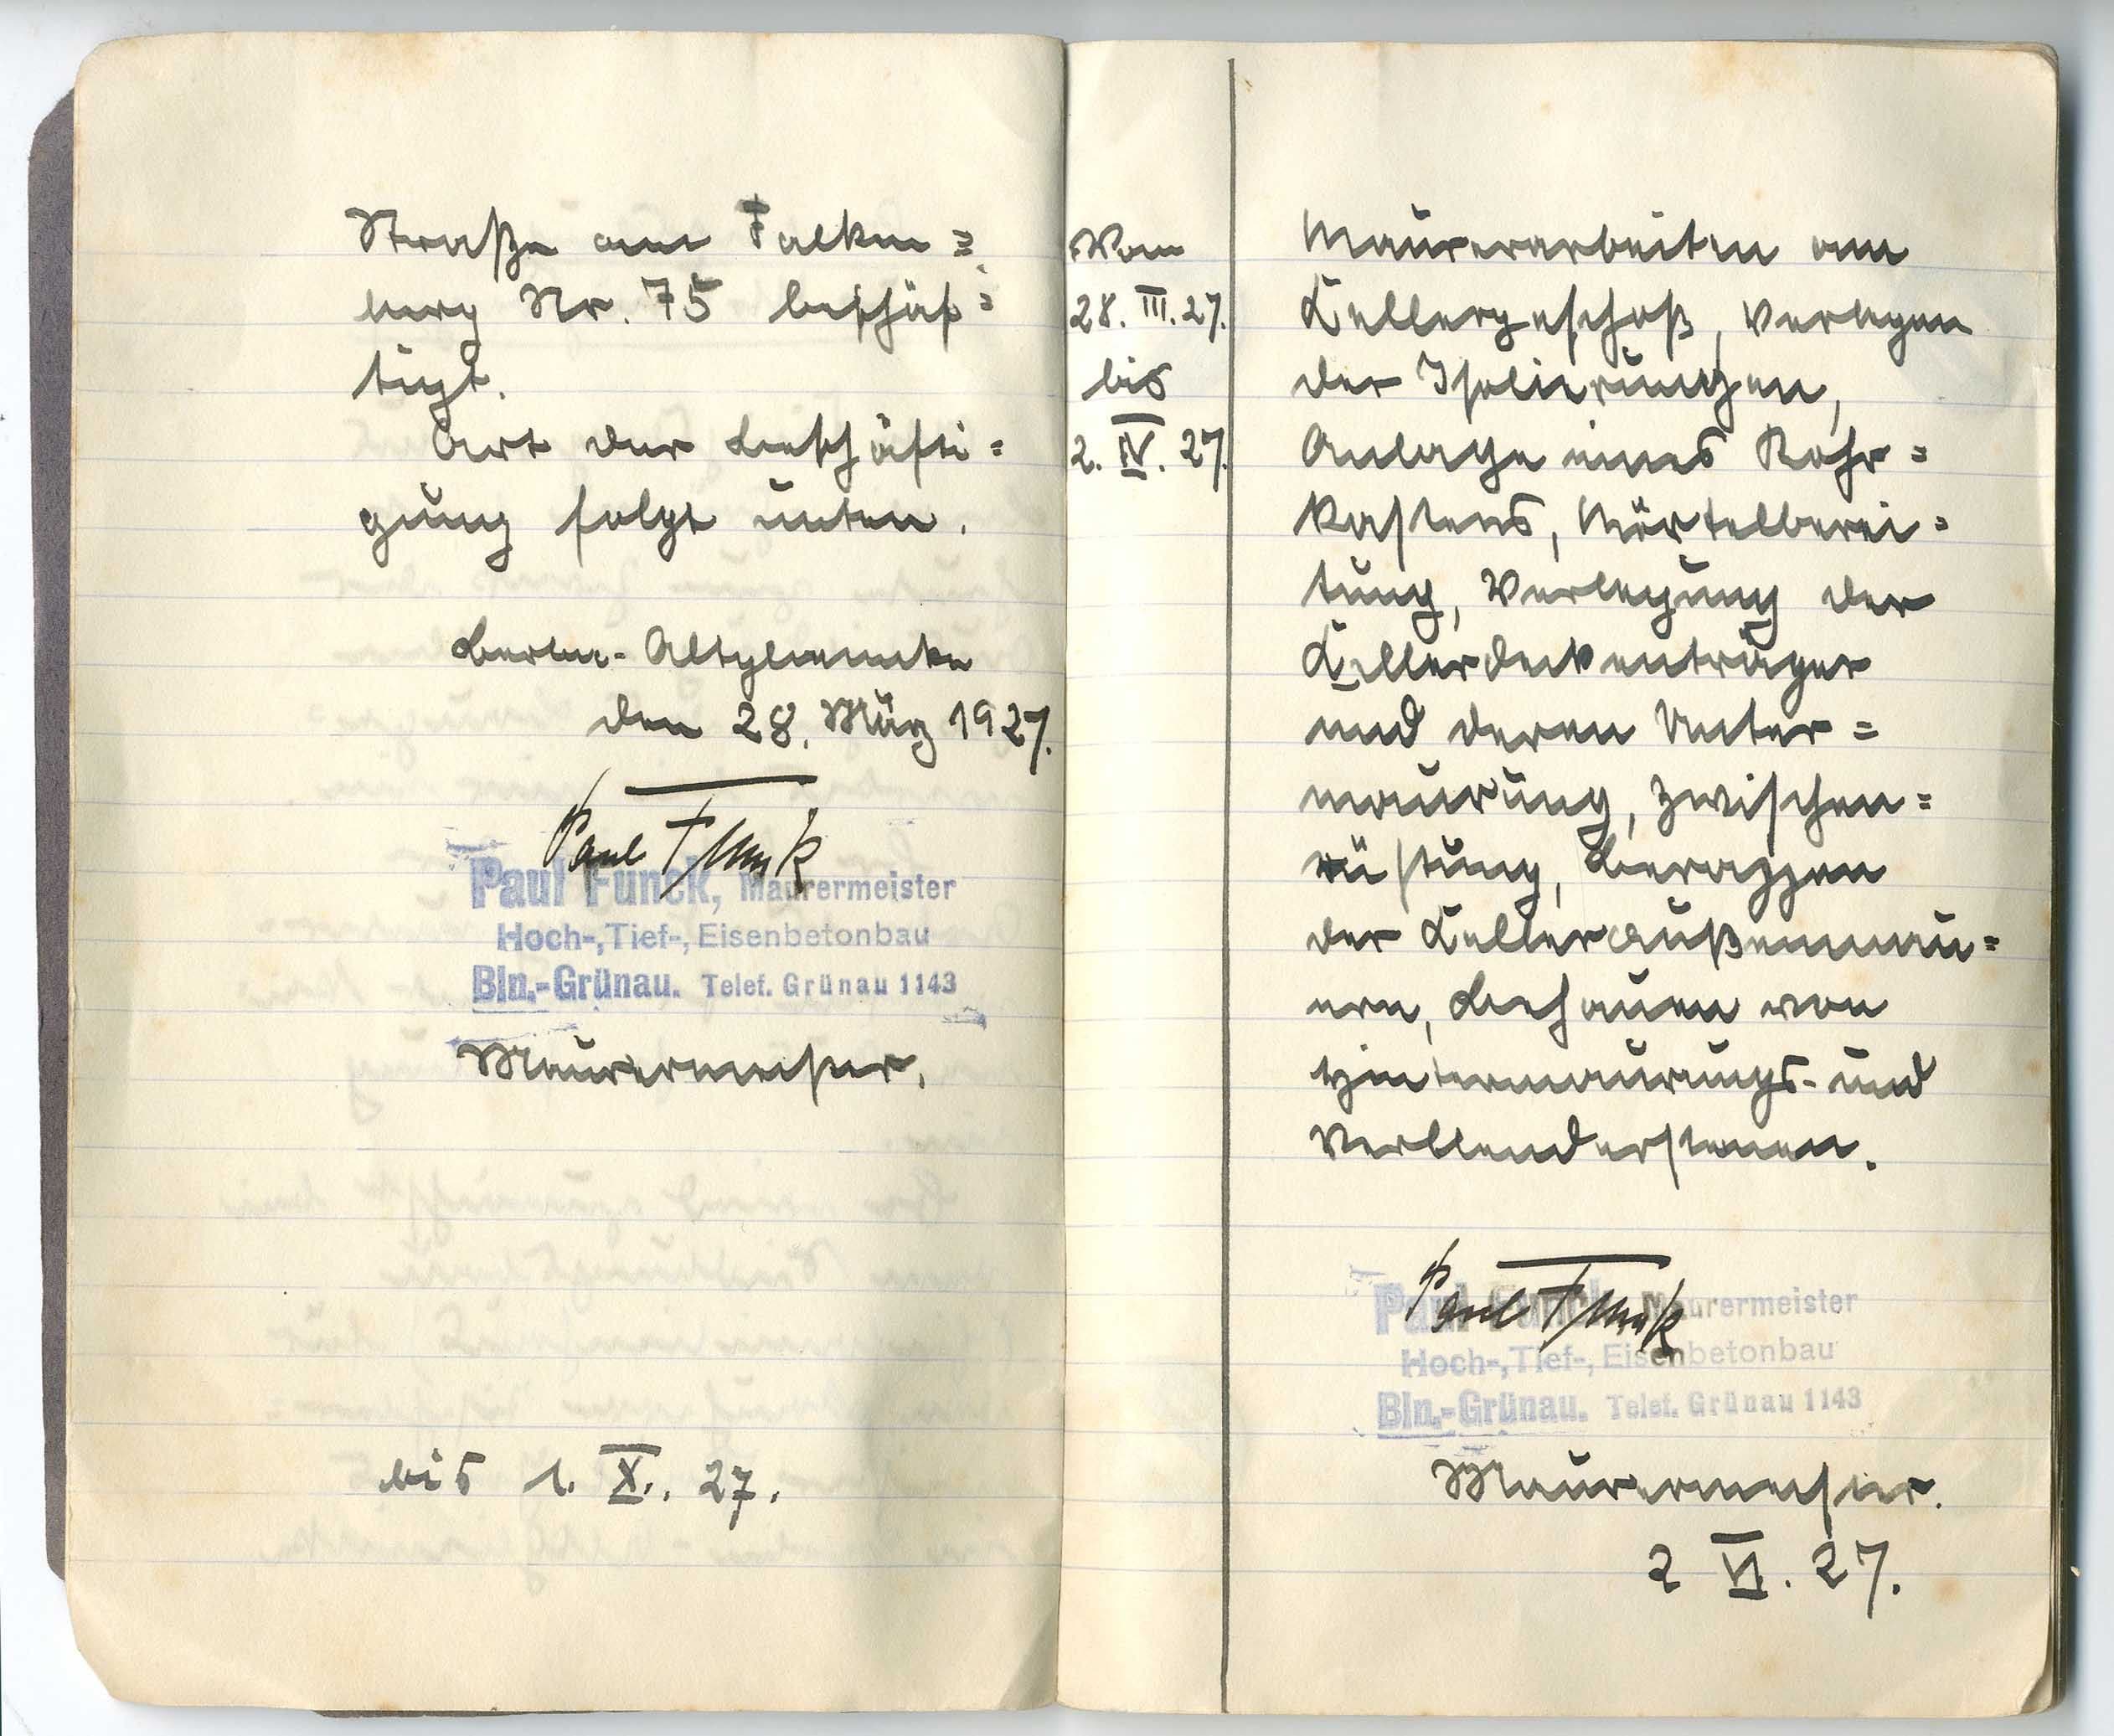 Straße am Falken=
berg Nr. 75 beschäf=
tigt.
Art der Beschäfti=
gung folgt unten.
Berlin-Altglienicke
den 28. März 1927.
Paul Funck
Paul Funck, Maurermeister
Hoch-, Tief-, Eisenbetonbau
Bln.-Grünau. Telef. Grünau 1143
Maurermeister.
bis 1. X. 27.
Vom
28. III. 27.
bis
2. IV. 27.
Maurerarbeiten am
Kellergeschoß, Verlegen
der Isolierungen,
Anlage eines Rohr=
kastens, Mörtelberei=
tung, Verlegung der
Kellerdeckenträger
und deren Unter=
maurung, Zwischen=
rüstung, Berappen
der Kelleraußenmau=
ern, Behauen von
Hintermaurungs- und
Verblendersteinen.
Paul Funck
Paul Funck, Maurermeister
Hoch-, Tief-, Eisenbetonbau
Bln.-Grünau. Telef. Grünau 1143
Maurermeister.
2 VI. 27.